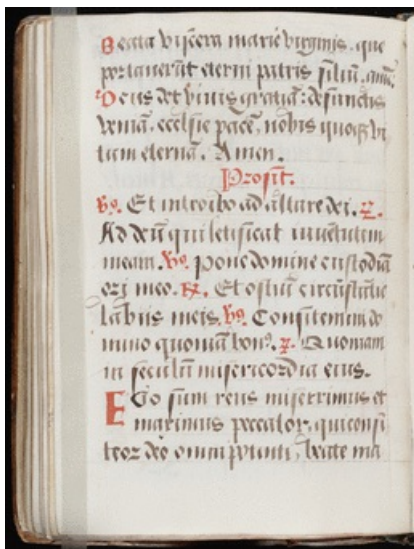 Beata viscera marie virginis. que
portaverūt eterni patris filiū. amē.
Deus det vivis gratiā: defunctis
veniā. ecclsie pacē, nobis quoqꝫ vi
tam eternā. Amen.
Prosit.
℣. Et introibo ad altare dei. ℟.
Ad deū qui letificat iuventutem
meam. ℣. pone domine custodiā
ori meo. ℟. Et ostiū circūstātie
labiis meis. ℣. Confitemini do
mino quoniā bonꝰ. ℟. Quoniam
in seculū misericordia eius.
Ego sum reus miserrimus et
maximus peccator. qui confi
teor deo omnipotenti, beate ma